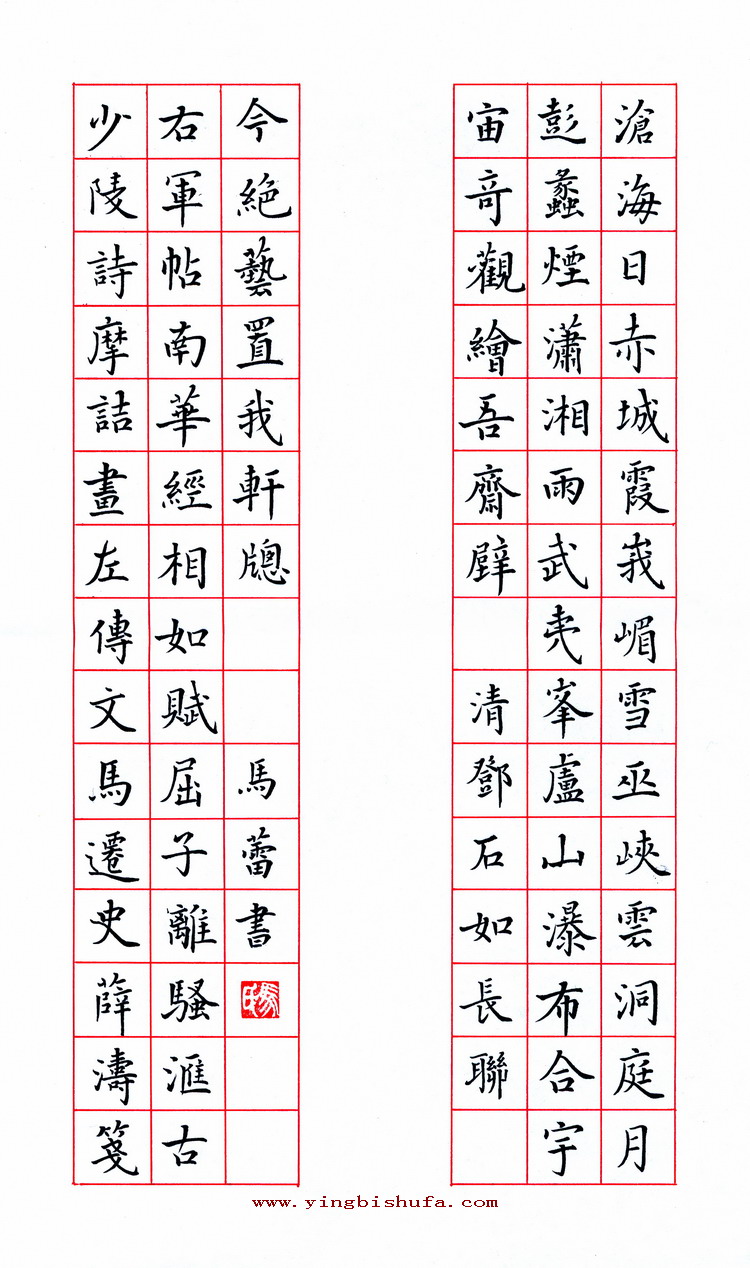 滄海日赤城霞峩嵋雪巫峽雲洞庭月
彭蠡煙瀟湘雨武夷峯盧山瀑布合宇
宙竒觀繪吾齋壁 清鄧石如長聯
少陵詩摩詰畫左傳文馬遷史薛濤箋
右軍帖南華經相如賦屈子離騷滙古
今絶藝置我軒牕 馬蕾書
www.yingbishufa.com